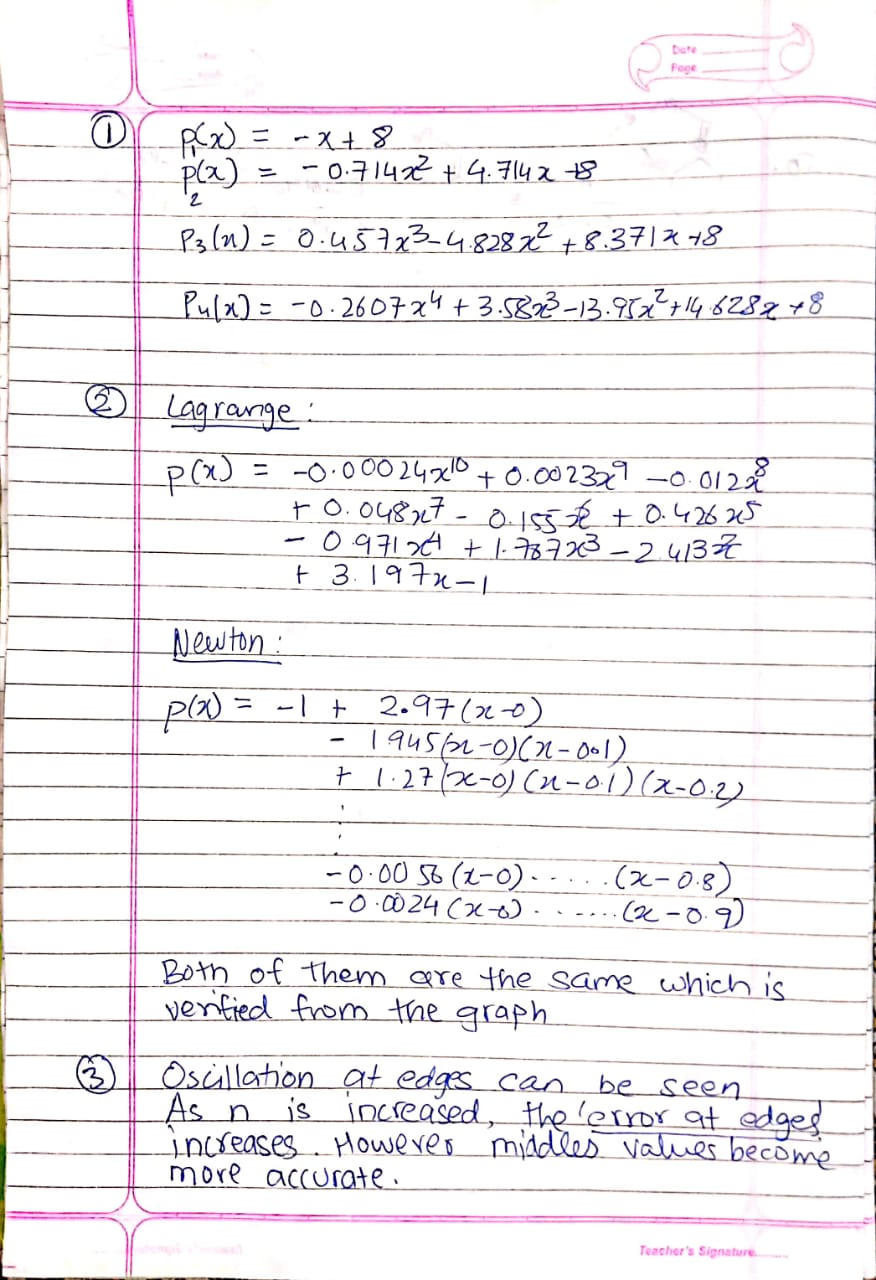 Date
Page
① P₁(x) = -x + 8
P₂(x) = -0.714x² + 4.714x +8
P₃(x) = 0.457x³-4.828x² +8.371x +8
P₄(x) = -0.2607x⁴ + 3.58x³-13.95x²+14.628x +8
② Lagrange :
p(x) = -0.00024x¹⁰ + 0.0023x⁹ -0.012x⁸
+ 0.048x⁷ - 0.155x⁶ + 0.426x⁵
- 0.971x⁴ + 1.787x³ - 2.413x²
+ 3.197x-1
Newton :
p(x) = -1 + 2.97(x-0)
- 1.945(x-0)(x-0.1)
+ 1.27(x-0)(x-0.1)(x-0.2)
⋮
-0.0056(x-0)......(x-0.8)
-0.0024(x-0).......(x-0.9)
Both of them are the same which is
verified from the graph
③ Oscillation at edges can be seen
As n is increased, the error at edges
increases. However middles values become
more accurate.
Teacher's Signature